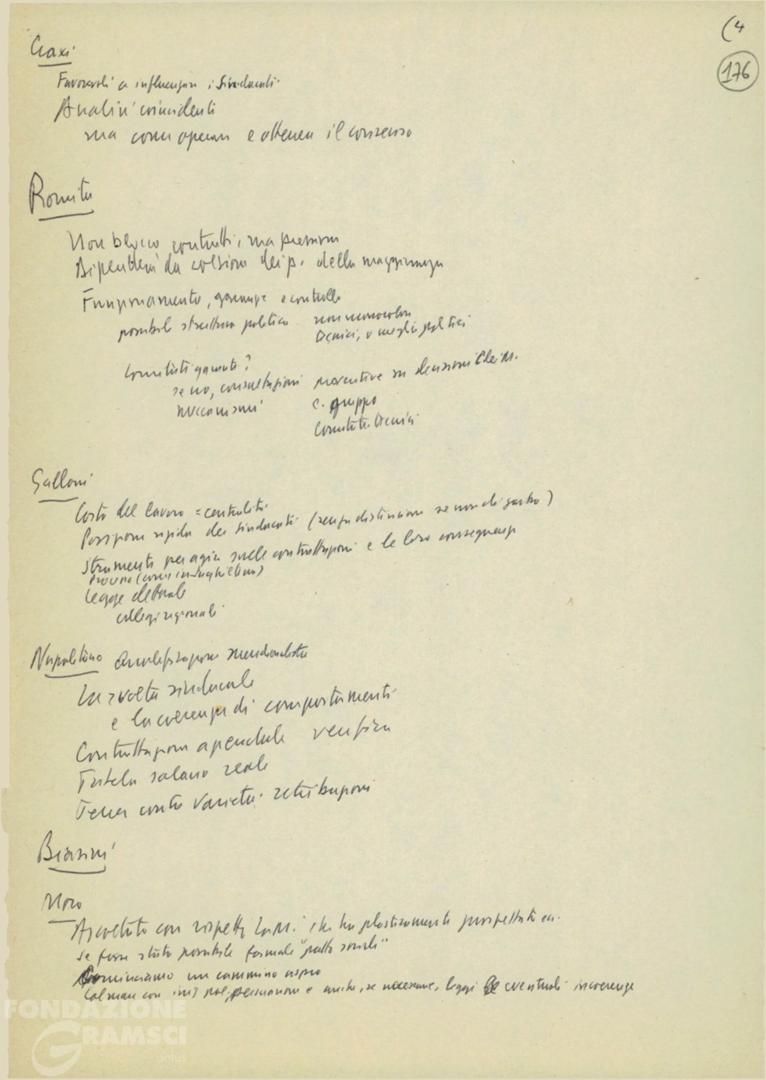 (4
176
Craxi
Favorevoli a influenzare i sindacati
Analisi coincidenti
ma come operare e ottenere il consenso
Romita
Non blocco contratti, ma pressioni
Dipenderà da coesione dei p. della maggioranza
Funzionamento, garanzie e controllo
possibile struttura politica
tecnici, o meglio politici
Comitati garanti?
se no, consultazioni preventive su decisioni
meccanismi c. gruppo
Comitati tecnici
Galloni
Costo del lavoro = centralità
Posizione rigida dei sindacati (senza distinzione se non di )
Strumenti per agire sulle contrattazioni e le loro conseguenze
Legge elettorale
collegi regionali
Napolitano meridionalista
La svolta sindacale
e la coerenza di comportamenti
Contrattazione aziendale verifica
Tutela salario reale
Tener conto varietà retribuzioni
Biasini
Moro
Ascoltato con rispetto LaM. che ha plasticamente prospettato
se fosse stato possibile formale "patto sociale"
Cominciamo un cammino aspro
Colmare con persuasione e anche, se necessario, leggi eventuali incoerenze
FONDAZIONE
GRAMSCI
onlus